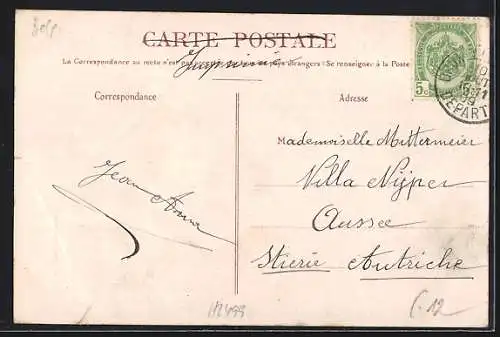 Belg.
CARTE POSTALE
La Correspondance au recto n'est pas
étrangers (Se renseigner à la Poste
Imprimé
Correspondance
Adresse
5c 5c
DEPART
Mademoiselle Mittermeier
Villa Nijper
Aussee
Stierie Autriche
Jean
H2499
C-12